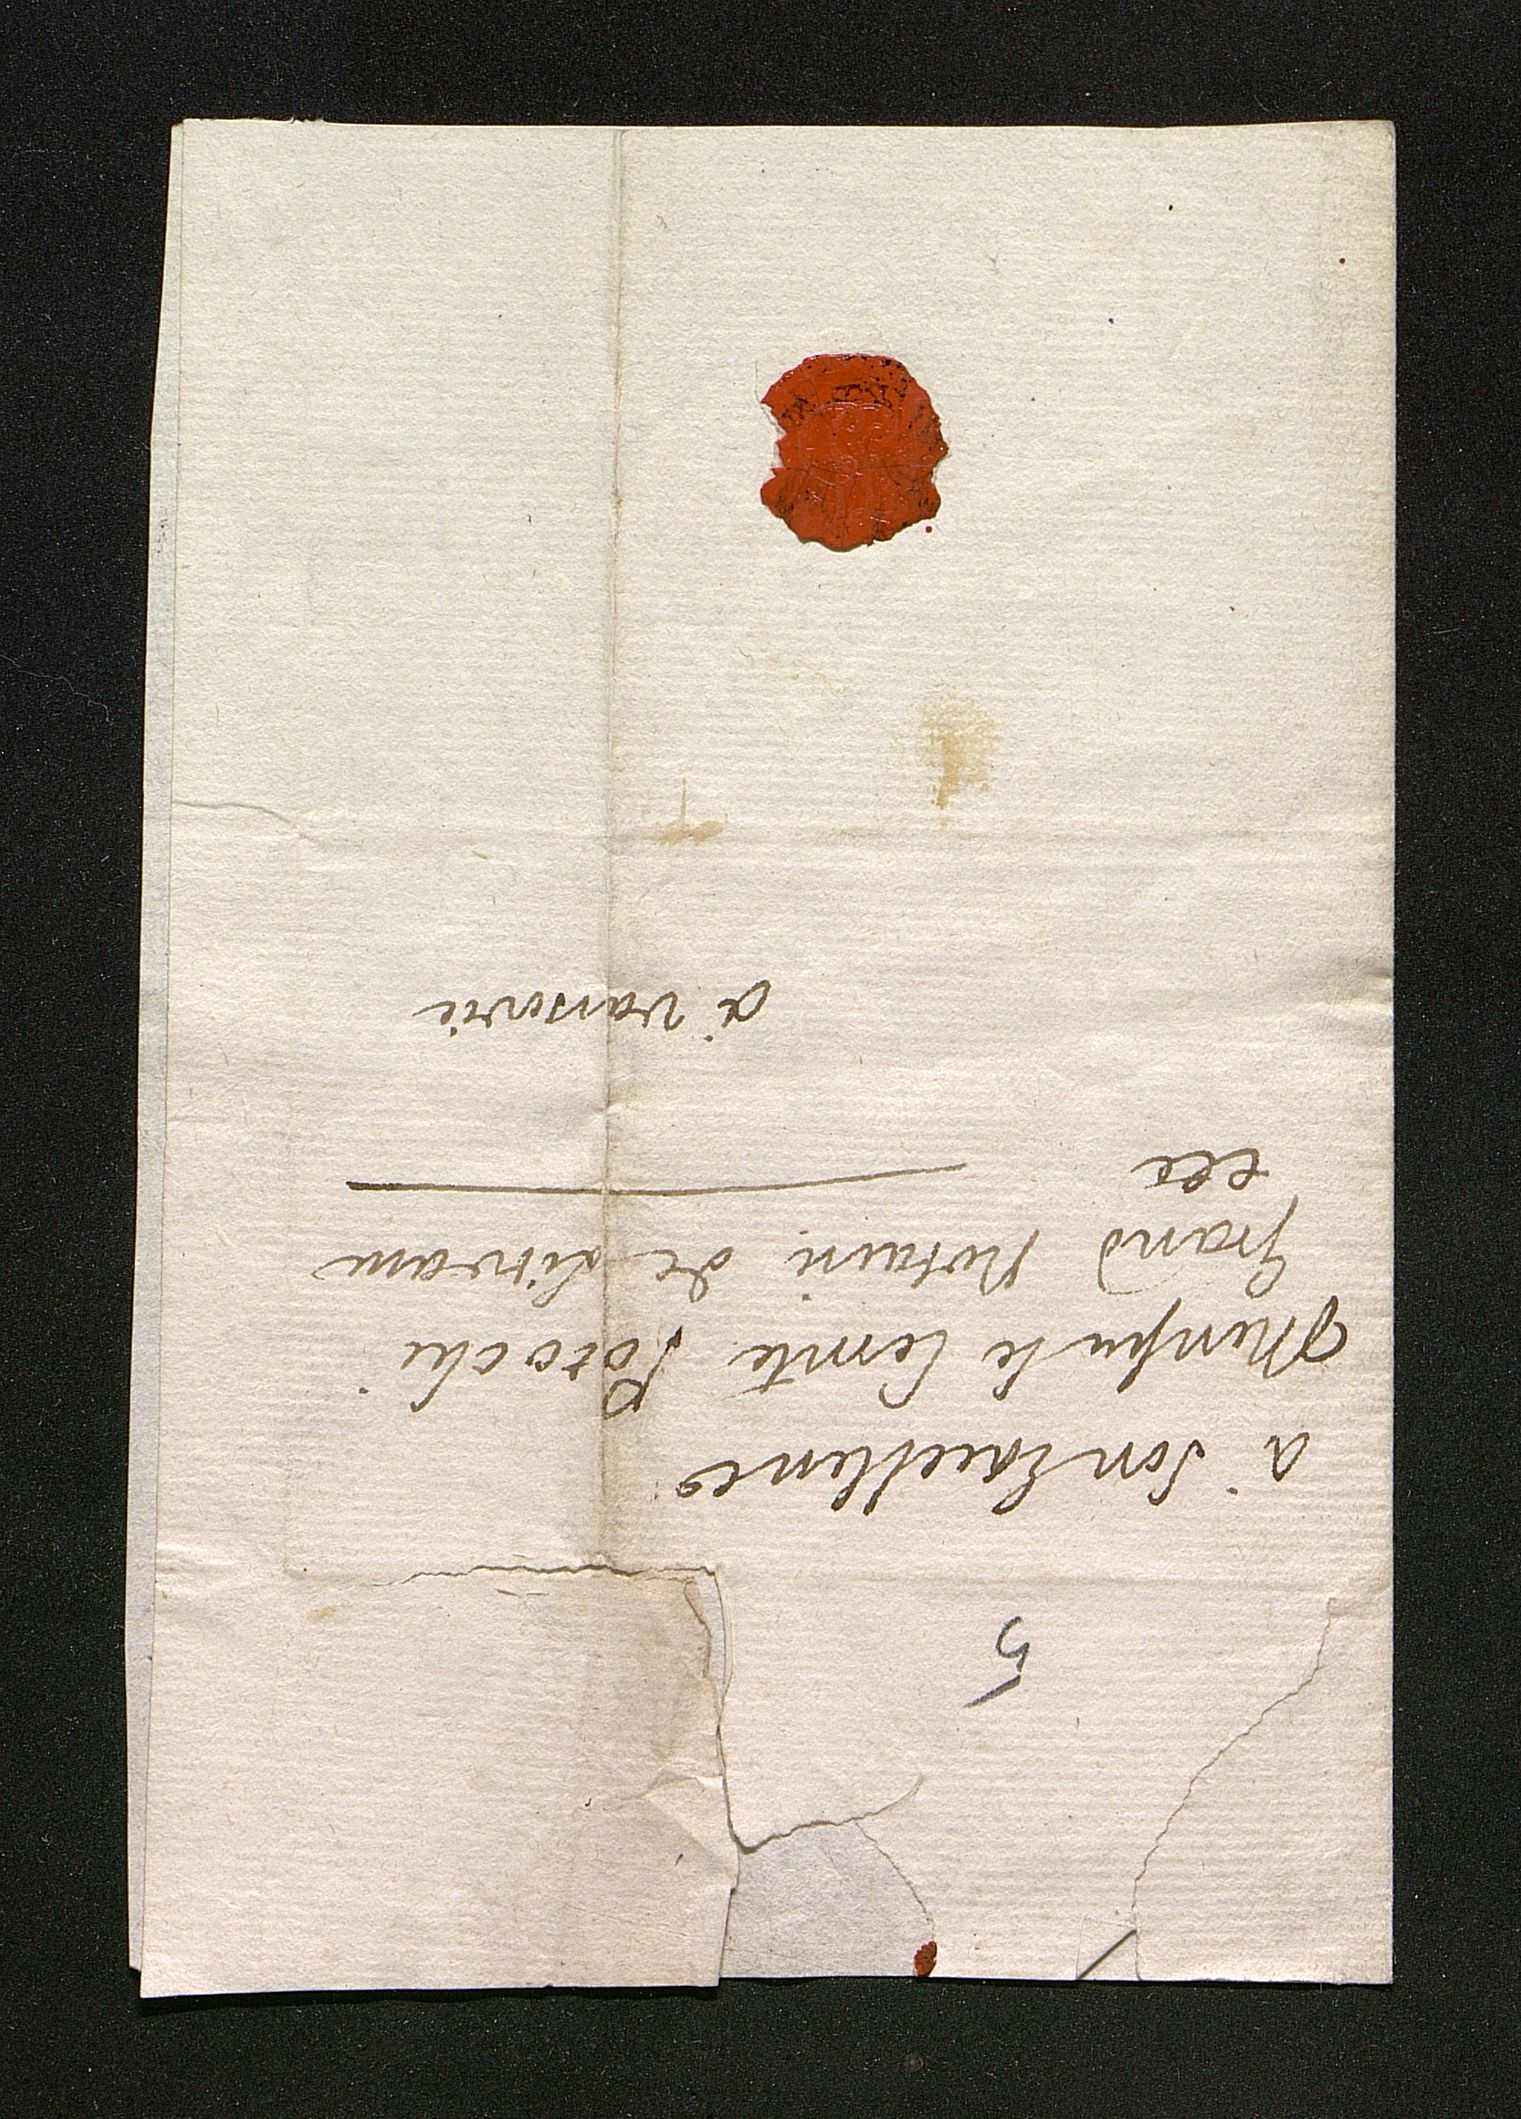 5
à Son Excellence
Monsr le Comte Potocki
Grand Notaire de Lituanie
etc
à Varsovie